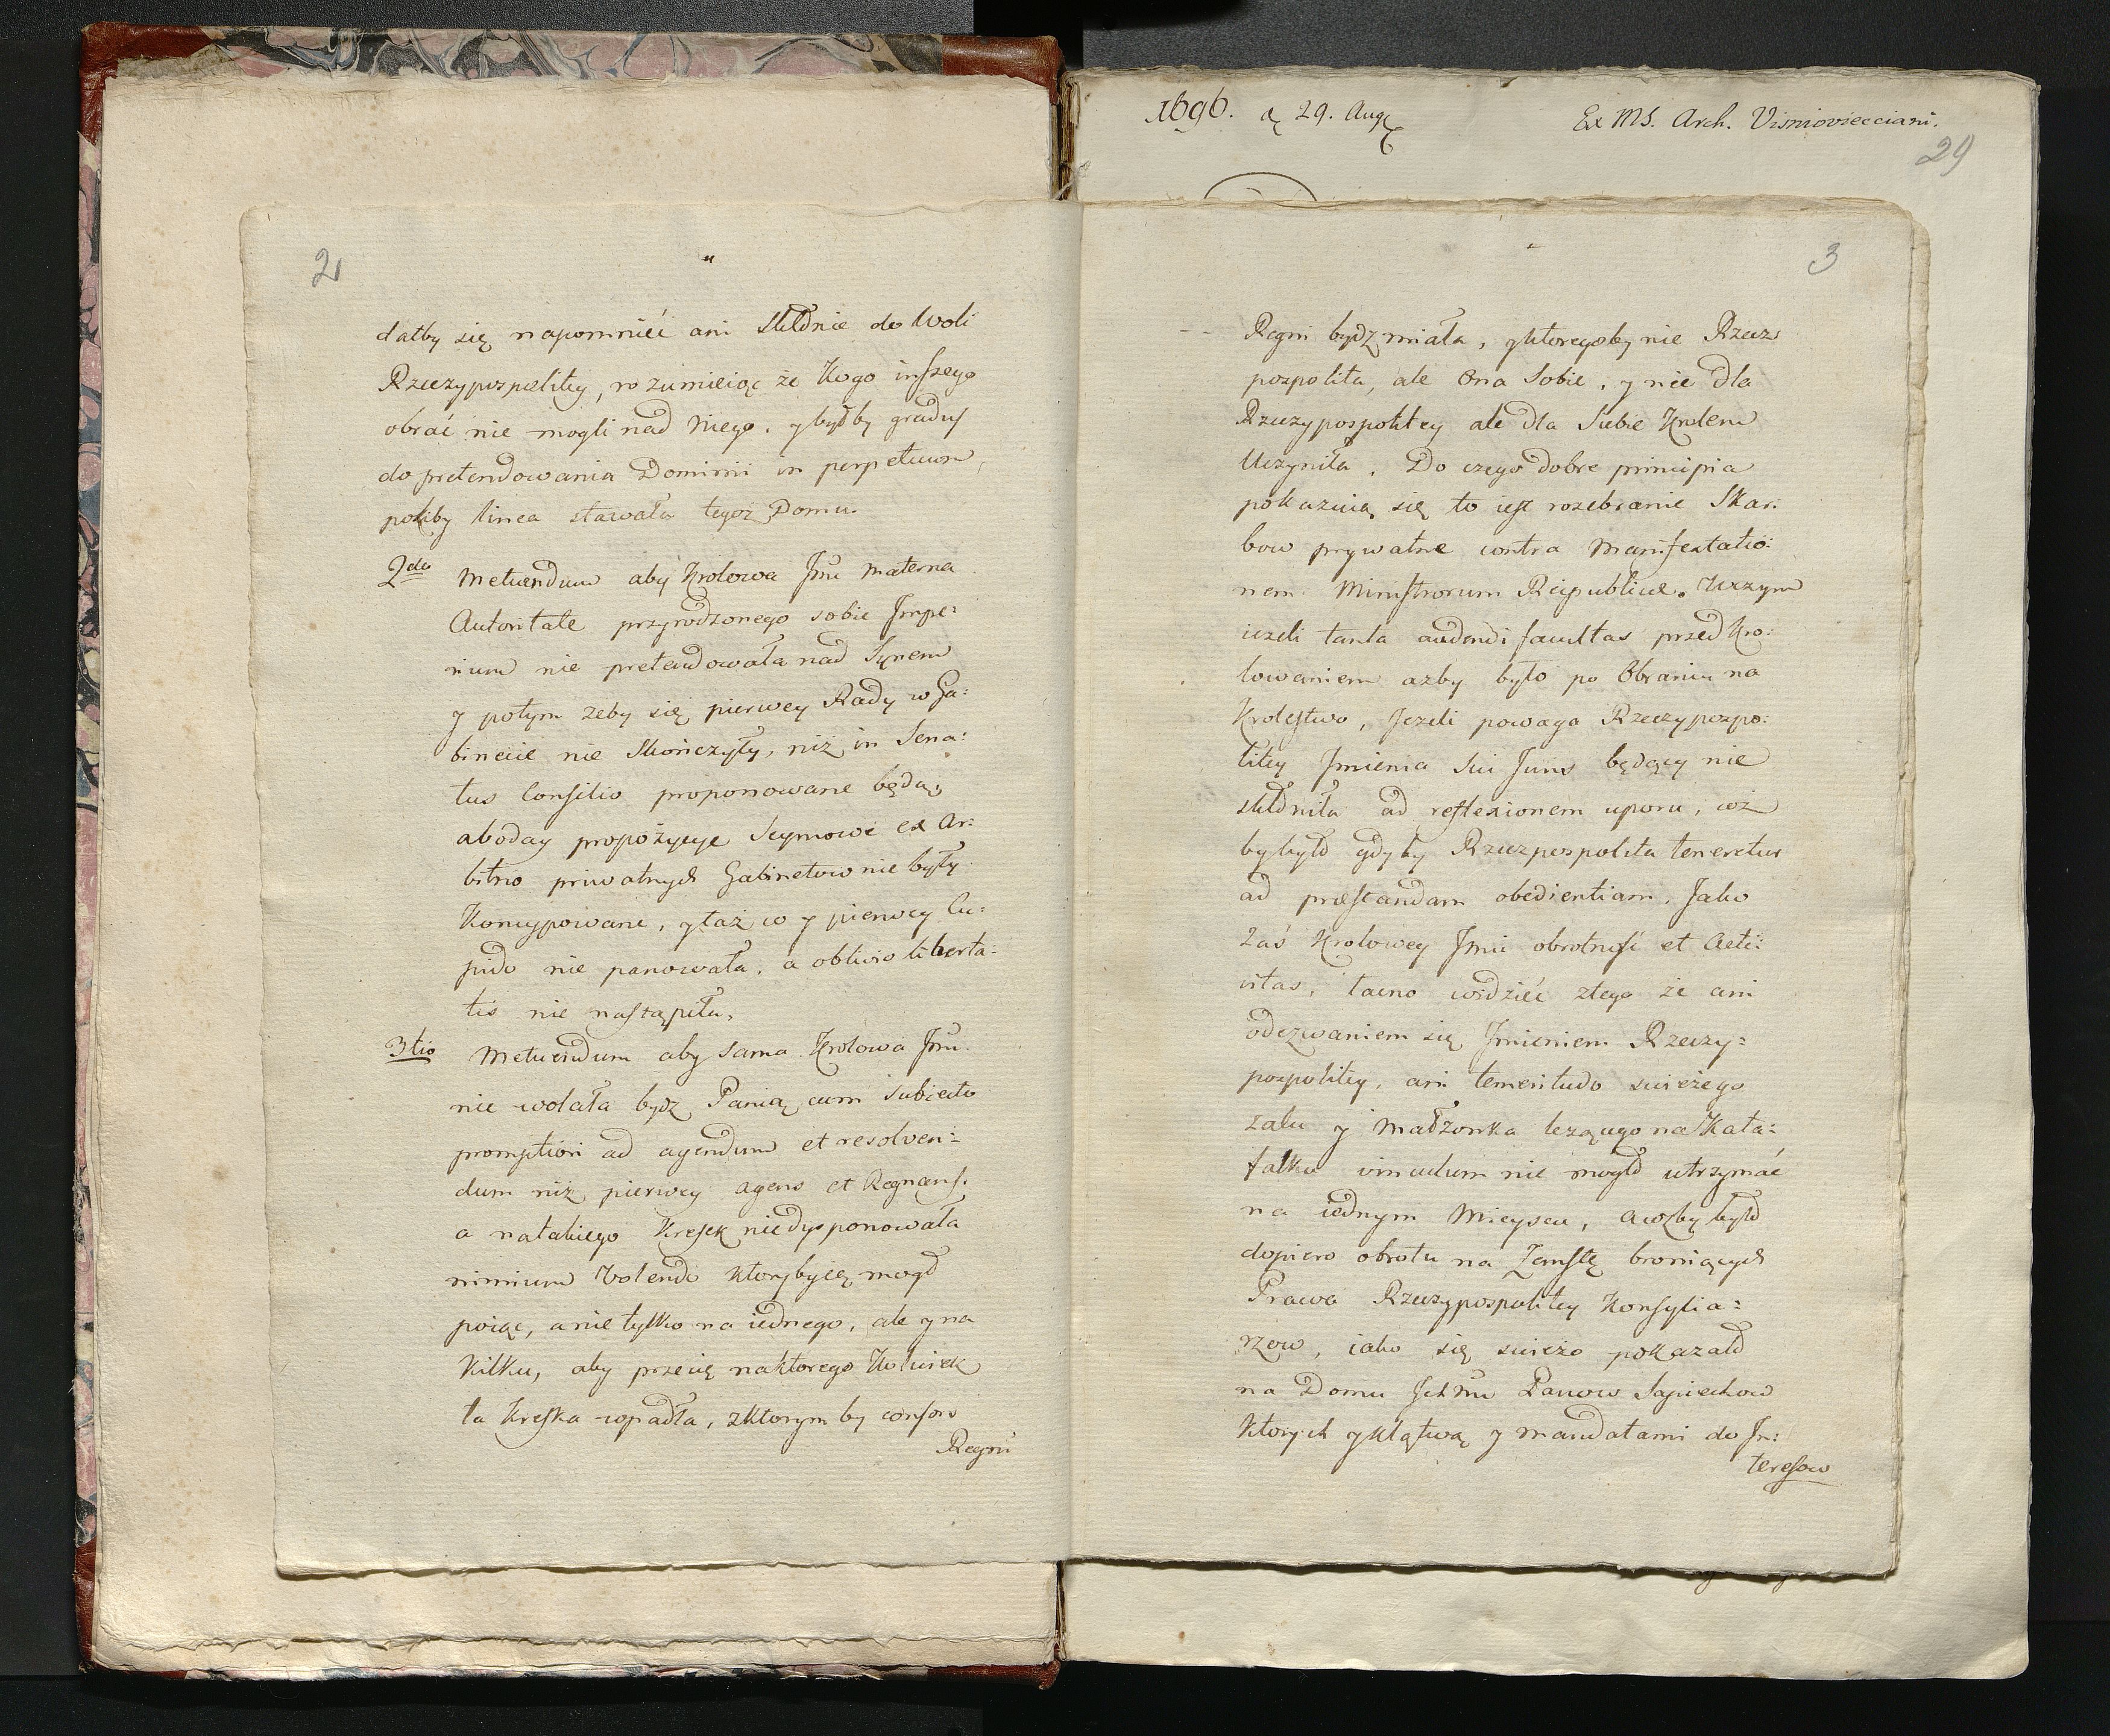 2
dałby się napomnieć ani skłonić do Woli
Rzeczypospolitey, rozumieiąc że Kogo inszego
obrać nie mogli nad Niego, y byłby gradus
do pretendowania Dominii in perpetuum,
pokiby linea stawała tegoż Domu.
2do Metuendum aby Krolowa Jmć Materna
Autoritate przyrodzonego sobie Impe:
rium nie pretendowała nad Synem
y potym żeby się pierwey Rady w Ga:
binecie nie Skończyły, niż in Sena:
tus Consilio proponowane będą,
aboday propozycye Seymowe ex Ar:
bitrio priwatnych Gabinetow nie były
Koncypowane, y taż co y pierwey Cu:
pido nie panowała, a oblivio liberta:
tis nie nastąpiła,
3tio Metuendum aby sama Krolowa Jmć
nie wolała bydz Panią cum Subiecto
promptiori ad agendum et resolven:
dum niż pierwey agens et Regnans,
a na takiego Kresek nie dysponowała
nimium Volendo ktoryby ię mogł
poiąc, a nie tylko na iednego, ale y na
Kilku, aby przecię na ktorego Kolwiek
ta kreska wpadła, z ktorym by consors
Regni
1696. d 29. Aug
Ex MS. Arch. Visnioviecciani.
29
3
Regni bydz miała, y ktoregoby nie Rzecz
pospolita, ale Ona Sobie, y nie dla
Rzeczypospolitey ale dla Siebie Krolem
Uczyniła. Do czego dobre principia
pokazuią się to iest rozebranie Skar:
bow prywatne contra Manifestatio:
nem Ministrorum Reipublicæ. W czym
ieżeli tanta audendi facultas przed Kro:
lowaniem ażby było po Obraniu na
Krolestwo, Jeżeli powaga Rzeczypospo:
litey Imienia Sui Juris będący nie
skłoniła ad reflexionem uporu, coż
by było gdyby Rzeczpospolita teneretur
ad præstandam obedientiam, Jako
zaś Krolowey Jmć obrotność et Acti:
vitas, łacno widzieć z tego że ani
odezwaniem się Imieniem Rzeczy:
pospolitey, ani temeritudo swieżego
żalu y Małżonka leżącego na Kata:
falku vinculum nie mogło utrzymać
na iednym Mieyscu, a cożby było
dopiero obrotu na Zemstę broniących
Prawa Rzeczypospolitey Konsylia:
rzow, iako się swieżo pokazało
na Domu Ichmć Panow Sapiehow
ktorych y klątwą y mandatami do In:
teresow